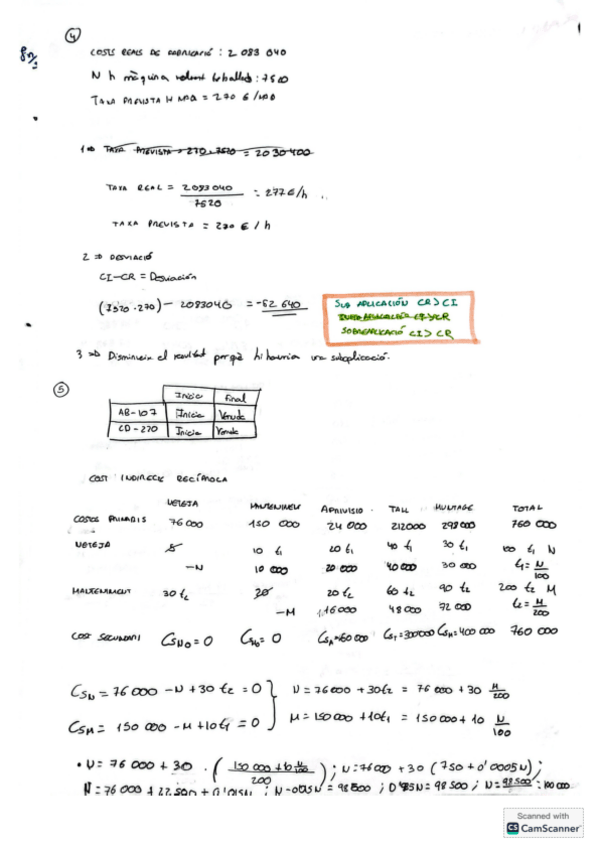 4
COSTS REALS DE FABRICACIÓ : 2 083 040
N h màquina
TAXA PREVISTA H MAQ = 270 €
1 ⇒ TAXA PREVISTA = 270 . 7520 = 2030400
TAXA REAL = 2083040 / 7520 = 277 €/h
TAXA PREVISTA = 270 € / h
2 ⇒ DESVIACIÓ
CI - CR = Desviación
(7520 · 270) - 2083040 = -52 640
SUB APLICACIÓN CR > CI
SOBREAPLICACIÓ CI > CR
3 ⇒ Disminueix el resultat perquè hi hauria una subaplicació.
5
Inicia Final
AB-107 Inicia Venuda
CD-270 Inicia Venuda
COST INDIRECTE RECÍPROCA
NETEJA MANTENIMENT APROVISIO TALL MUNTAGE TOTAL
COSTOS PRIMARIS 76 000 150 000 24 000 212000 298000 760 000
NETEJA 10 t₁ 20 t₁ 40 t₁ 30 t₁ 100 t₁ N
-N 10 000 20 000 40 000 30 000 t₁ = N/100
MANTENIMENT 30 t₂ 20 t₂ 60 t₂ 90 t₂ 200 t₂ M
-M 16 000 48 000 72 000 t₂ = M/200
COST SECUNDARI = 0 = 0 = 60 000 = 300000 = 400 000 760 000
CS_N = 76 000 - N + 30 t₂ = 0 } N = 76000 + 30 t₂ = 76 000 + 30 M/200
CS_M = 150 000 - M + 10 t₁ = 0 } M = 150 000 + 10 t₁ = 150 000 + 10 N/100
• N = 76 000 + 30 · ; N = 76000 + 30 (750 + 0'0005 N) ;
N = 76 000 + 22 500 + 0'015N ; N - 0'015N = 98 500 ; = 98 500 ; = 100 000
Scanned with
CS CamScanner